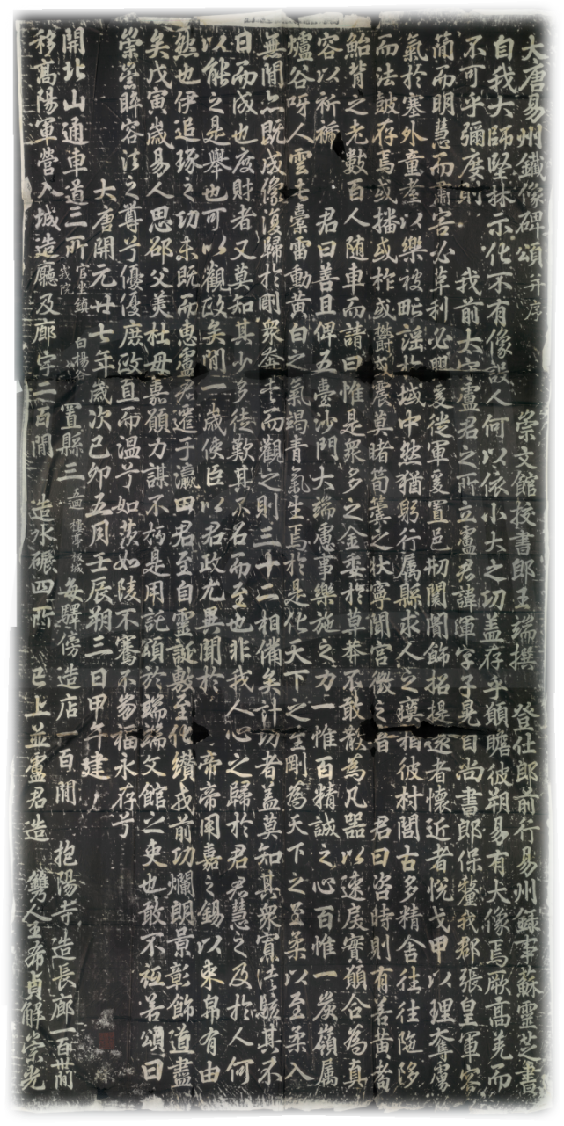 大唐易州鐵像碑頌并序 崇文館挍書郎王端撰 登仕郎前行易州錄事蘇靈芝書
自我大師堅林示化不有像設人何以依小大之功蓋存乎願瞻彼朔易有大像焉厥高羌而
不可乎彌度則 我前大守盧君之所立盧君諱暉字子晃自尚書郎保釐我郡張皇軍容
簡而明慧而肅害必革利必興爰從軍爰置邑刱開闤飾招提遠者懷近者悅戈甲以理奪虜
氣於塞外童耄以樂被甿謠於域中然猶躬行屬縣求人之瘼相彼村閭古多精舍往往陊
而法鼓存焉或播或柞或欝或震莫睹筍簴之狀寧聞宮徵之音 君曰咨時則有若黃耇
鮐背之老數百人随車而請曰惟是衆多之金棄於草莽不敢散為凡器以速戾實願合為真
容以祈福 君曰善且俾五臺沙門大端慮事樂施之力一惟百精誠之心百惟一炭嶺屬
爐谷呀人雲屯橐雷動黃白之氣竭青氣生焉於是化天下之至剛為天下之至柔以至柔入
無間亦既成像復歸於剛衆奎走而觀之則三十二相備矣計功者蓋莫知其衆寡法駭其不
日而成也度財者又莫知其少多徒歎其不名而至也非我人心之歸於君君慧之及於人何
以能之是舉也可以觀政矣開一歲侯臣以君政尤異聞於 帝帝用嘉之錫以束帛有由
然也伊追琢之功未既而惠盧君遷于瀛田君至自靈誕敷至化纘我前功爛朗景彰飾道盡
矣戊寅歲易人思郤父美杜母嘉願力謀不朽是用記頌於端端文館之吏也敢不祗若頌曰
崇崇睟容法之尊兮優優農政直而溫兮如茨如陵不騫不崩福永存兮
大唐開元廿七年歲次己卯五月壬辰朔三日甲午建
開北山通車道三所 官車鎮 白楊 置縣三 五迴 樓亭 板城 每驛傍造店一百間 抱陽寺造長廊一百間
移高陽軍營入城造廳及廊宇二百間 造水碾四所 已上並盧君造 鐫人王希貞解崇光